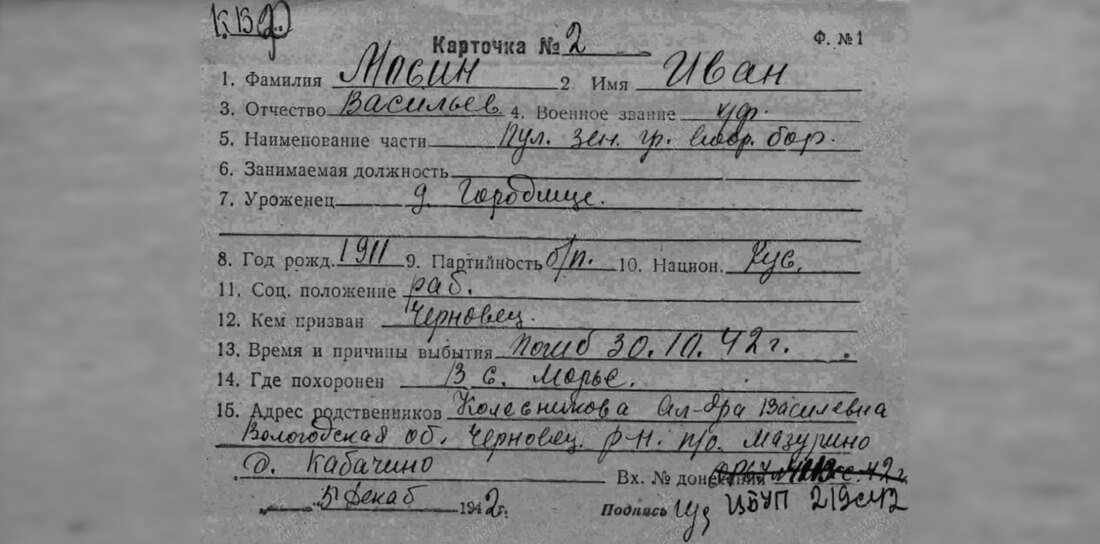 К.В.Ф
Карточка № 2 Ф. №1
1. Фамилия Масин 2. Имя Иван
3. Отчество Васильев 4. Военное звание кф.
5. Наименование части Пул. зен. гр. бор.
6. Занимаемая должность
7. Уроженец д. Городище.
8. Год рожд. 1911 9. Партийность б/п. 10. Национ. Рус.
11. Соц. положение раб.
12. Кем призван Черновец.
13. Время и причины выбытия Погиб 30.10.42 г.
14. Где похоронен В с. Морье.
15. Адрес родственников Колесникова Ал-дра Василевна
Вологодская об. Черновец. р-н. п/о. Мазурино
д. Кабачино Вх. №
5 декаб 1942 г. Подпись ЦБУП 219с42